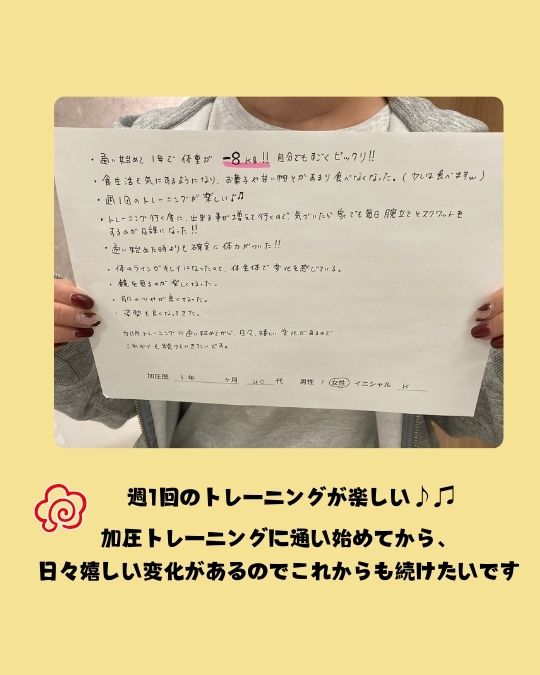 ・通い始めて1年で体重が -8kg!! 自分でもすごくビックリ!!
・食生活も気にするようになり、お菓子や甘い物とかあまり食べなくなった。(少しは食べますw)
・週1回のトレーニングが楽しい♪♫
・トレーニング行く度に、出来る事が増えて行くので、気づいたら家でも毎日腕立てとスクワットを
するのが日課になった!!
・通い始めた時よりも確実に体力がついた!!
・体のラインがキレイになったので、体全体で変化を感じている。
・鏡を見るのが楽しくなった。
・肌のツヤが良くなった。
・姿勢も良くなってきた。
加圧トレーニングに通い始めてから、日々、嬉しい変化があるので
これからも続けていきたいです。
加圧歴 1年 ヶ月 40代 男性 / 女性 イニシャル K
週1回のトレーニングが楽しい♪♫
加圧トレーニングに通い始めてから、
日々嬉しい変化があるのでこれからも続けたいです